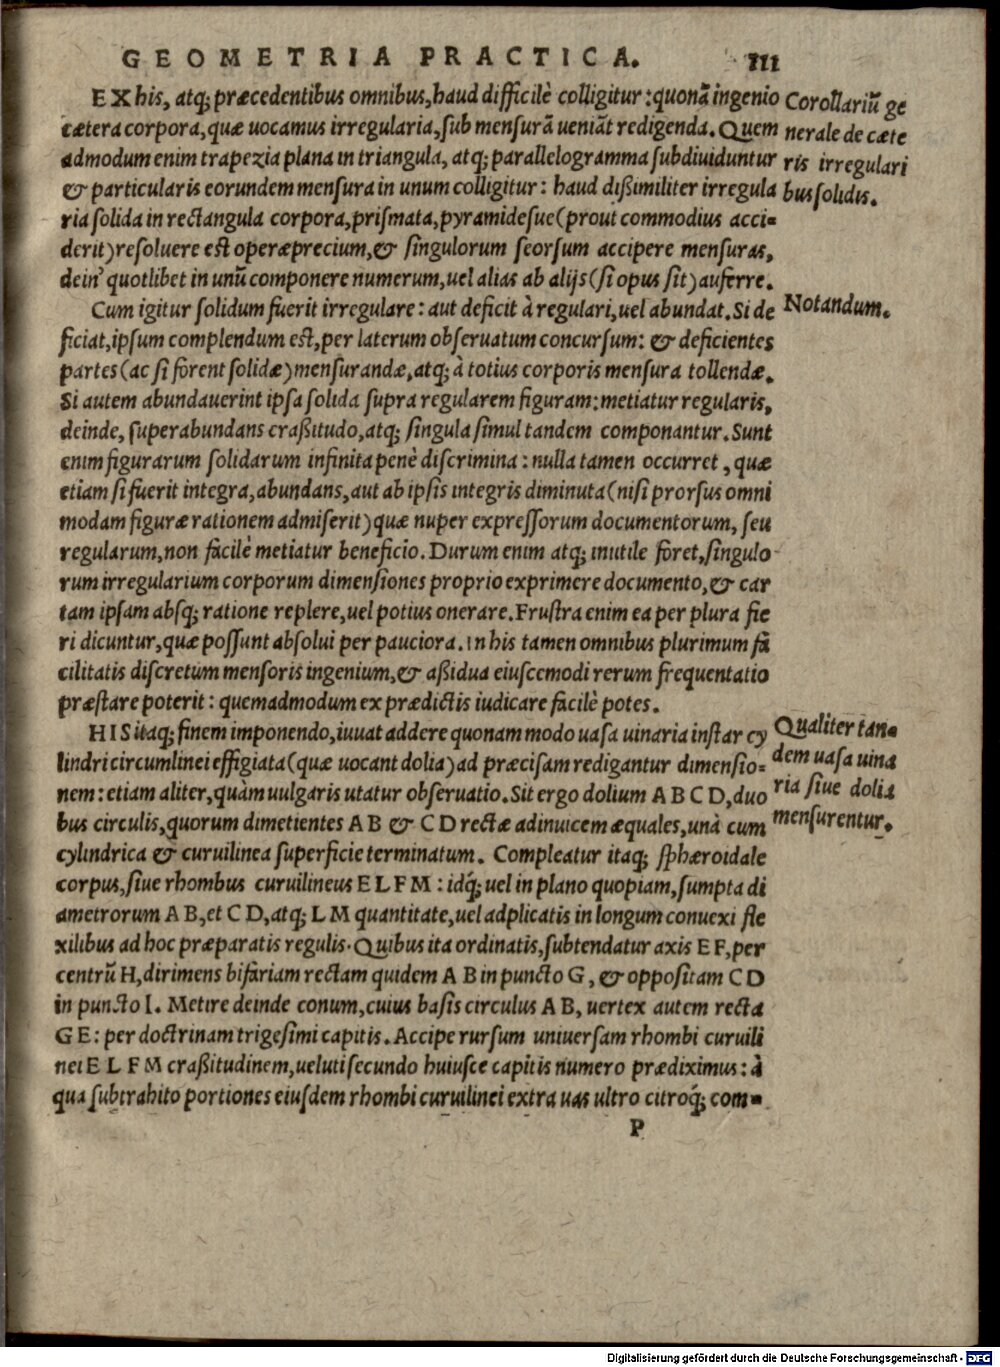 GEOMETRIA PRACTICA. 111
EX his, atq; præcedentibus omnibus, haud difficilè colligitur: quonã ingenio
cætera corpora, quæ uocamus irregularia, sub mensurã ueniãt redigenda. Quem
admodum enim trapezia plana in triangula, atq; parallelogramma subdiuiduntur
& particularis eorundem mensura in unum colligitur: haud dißimiliter irregula
ria solida in rectangula corpora, prismata, pyramidesue (prout commodius acci=
derit) resoluere est operæprecium, & singulorum seorsum accipere mensuras,
dein' quotlibet in unũ componere numerum, uel alias ab alijs (si opus sit) auferre.
Corollariũ ge
nerale de cæte
ris irregulari
bus solidis.
Cum igitur solidum fuerit irregulare: aut deficit à regulari, uel abundat. Si de
ficiat, ipsum complendum est, per laterum obseruatum concursum: & deficientes
partes (ac si forent solidæ) mensurandæ, atq; à totius corporis mensura tollendæ.
Si autem abundauerint ipsa solida supra regularem figuram: metiatur regularis,
deinde, superabundans craßitudo, atq; singula simul tandem componantur. Sunt
enim figurarum solidarum infinita penè discrimina: nulla tamen occurret, quæ
etiam si fuerit integra, abundans, aut ab ipsis integris diminuta (nisi prorsus omni
modam figuræ rationem admiserit) quæ nuper expressorum documentorum, seu
regularum, non facilè metiatur beneficio. Durum enim atq; inutile foret, singulo-
rum irregularium corporum dimensiones proprio exprimere documento, & car
tam ipsam absq; ratione replere, uel potius onerare. Frustra enim ea per plura fie
ri dicuntur, quæ possunt absolui per pauciora. in his tamen omnibus plurimum fa
cilitatis discretum mensoris ingenium, & aßidua eiuscemodi rerum frequentatio
præstare poterit: quemadmodum ex prædictis iudicare facilè potes.
Notandum.
HIS itaq; finem imponendo, iuuat addere quonam modo uasa uinaria instar cy
lindri circumlinei effigiata (quæ uocant dolia) ad præcisam redigantur dimensio=
nem: etiam aliter, quàm uulgaris utatur obseruatio. Sit ergo dolium ABCD, duo
bus circulis, quorum dimetientes AB & CD rectæ adinuicem æquales, unà cum
cylindrica & curuilinea superficie terminatum. Compleatur itaq; sphæroidale
corpus, siue rhombus curuilineus ELFM: idq́; uel in plano quopiam, sumpta di
ametrorum AB, et CD, atq; LM quantitate, uel adplicatis in longum conuexi fle
xilibus ad hoc præparatis regulis. Quibus ita ordinatis, subtendatur axis EF, per
centrũ H, dirimens bifariam rectam quidem AB in puncto G, & oppositam CD
in puncto I. Metire deinde conum, cuius basis circulus AB, uertex autem recta
GE: per doctrinam trigesimi capitis. Accipe rursum uniuersam rhombi curuili
nei ELFM craßitudinem, ueluti secundo huiusce capitis numero prædiximus: à
qua subtrahito portiones eiusdem rhombi curuilinei extra uas ultro citroq́; com=
Qualiter tan=
dem uasa uina
ria siue dolia
mensurentur.
P
Digitalisierung gefördert durch die Deutsche Forschungsgemeinschaft - DFG